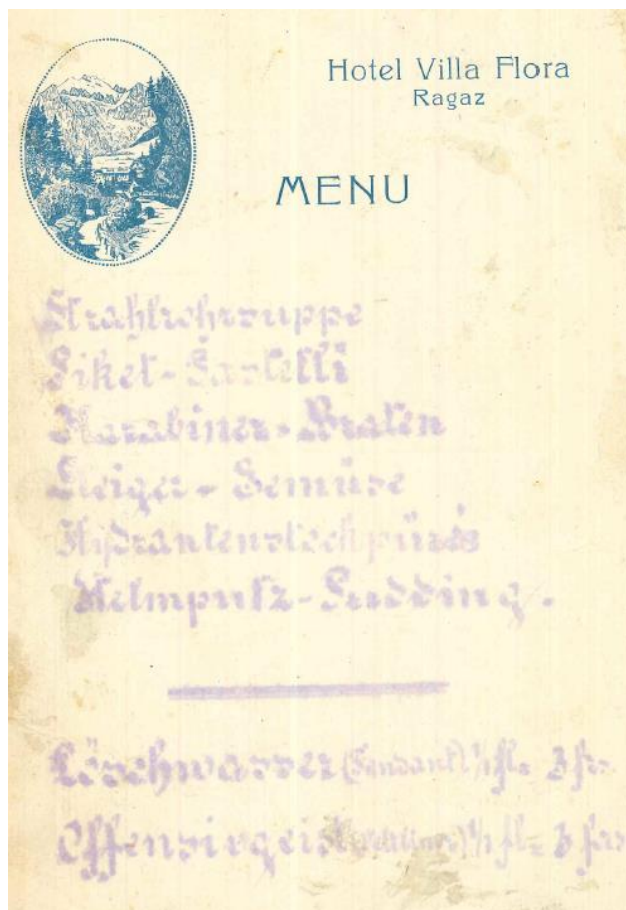 Hotel Villa Flora
Ragaz
MENU
Strahlrohrsuppe
Piket-Pastetli
Karabiner-Braten
Steiger-Gemüse
Hydrantenstockpürée
Helmputz-Pudding.
Löschwasser (Fendant) 1/1 fl= 3 frs
Offensivgeist 1/1 fl= 3 frs